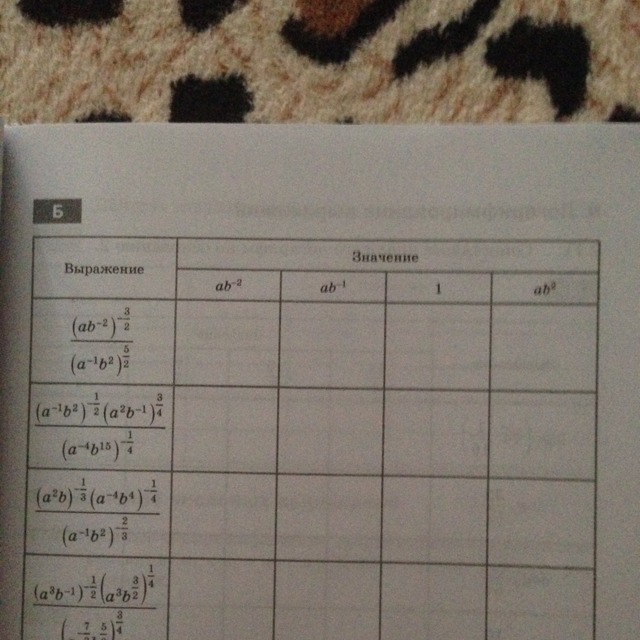 Б
Выражение
Значение
ab⁻² ab⁻¹ 1 ab²
(ab⁻²)^(-3/2)
(a⁻¹b²)^(5/2)
(a⁻¹b²)^(-1/2) (a²b⁻¹)^(3/4)
(a⁻⁴b¹⁵)^(-1/4)
(a²b)^(-1/3) (a⁻⁴b⁴)^(-1/4)
(a⁻¹b²)^(-2/3)
(a³b⁻¹)^(-1/2) (a³b^(3/2))^(1/4)